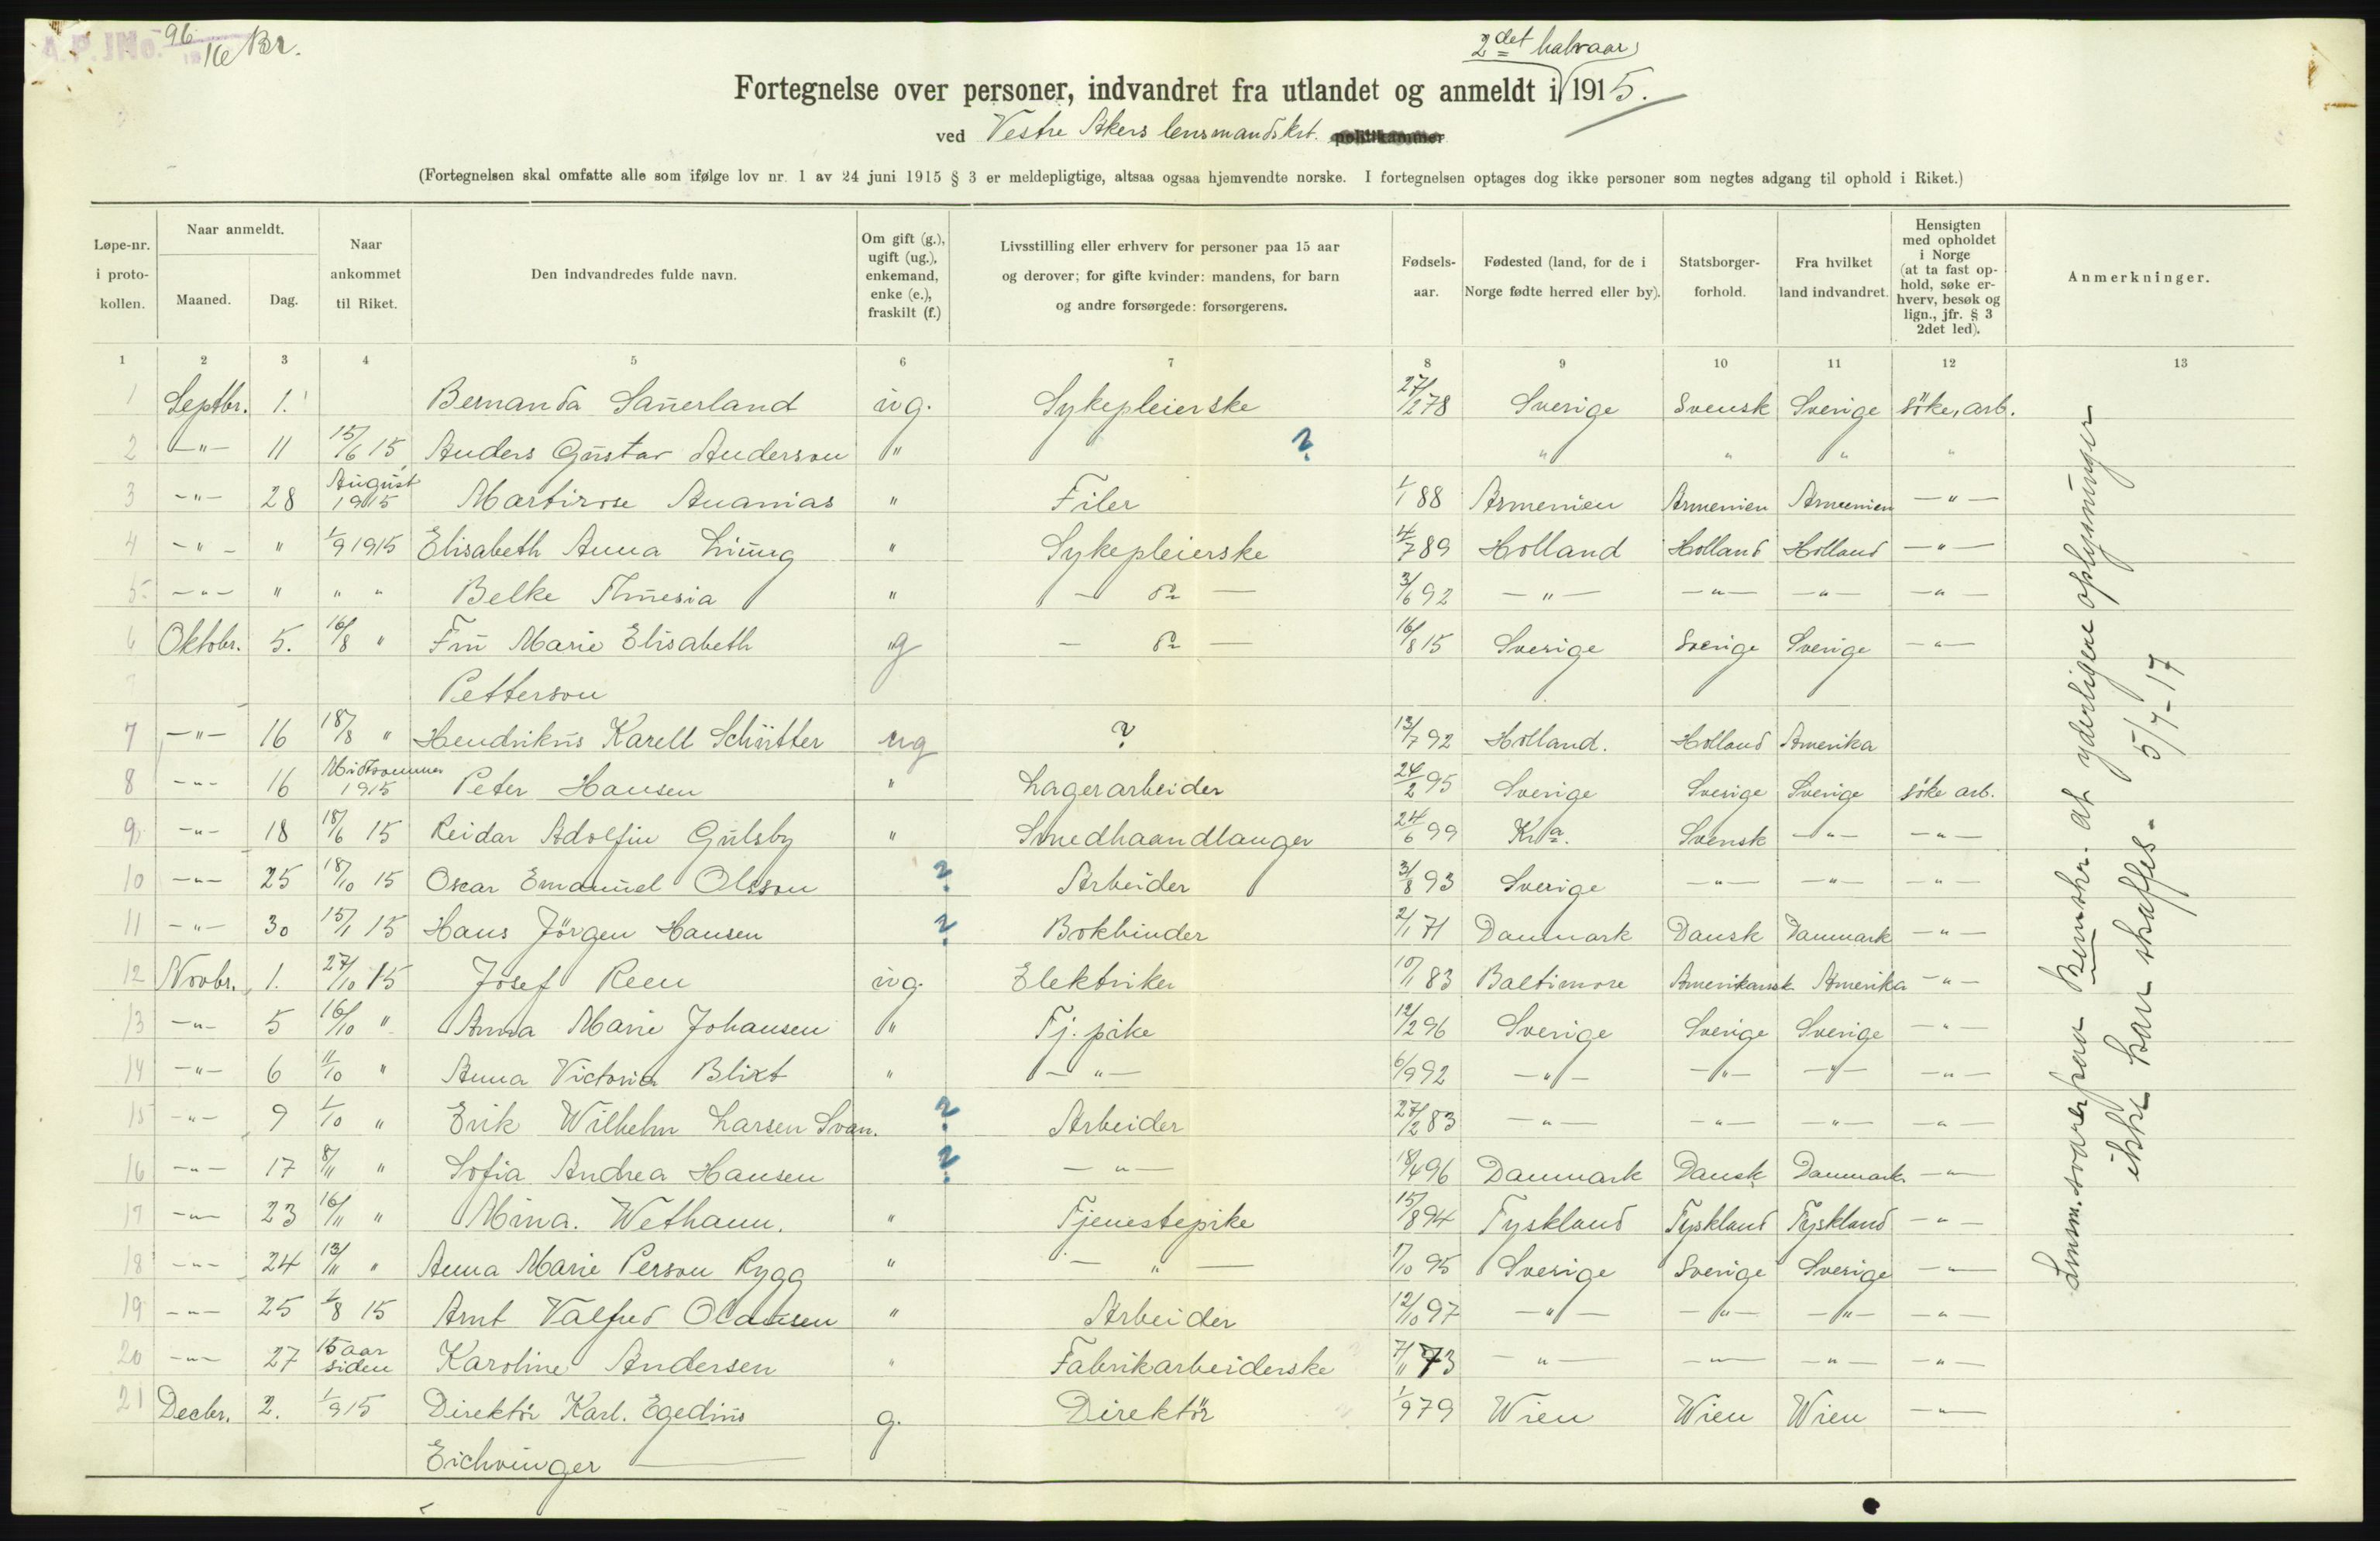 A.P.JNo. 96/16 Br.
2det halvaar
Fortegnelse over personer, indvandret fra utlandet og anmeldt i 1915.
ved Vestre Akers lensmandskt. politikammer
(Fortegnelsen skal omfatte alle som ifølge lov nr. 1 av 24 juni 1915 § 3 er meldepligtige, altsaa ogsaa hjemvendte norske. I fortegnelsen optages dog ikke personer som negtes adgang til ophold i Riket.)
Løpe-nr. i proto-kollen. Naar anmeldt. Maaned. Dag. Naar ankommet til Riket. Den indvandredes fulde navn. Om gift (g.), ugift (ug.), enkemand, enke (e.), fraskilt (f.) Livsstilling eller erhverv for personer paa 15 aar og derover; for gifte kvinder: mandens, for barn og andre forsørgede: forsørgerens. Fødsels-aar. Fødested (land, for de i Norge fødte herred eller by). Statsborger-forhold. Fra hvilket land indvandret. Hensigten med opholdet i Norge (at ta fast op-hold, søke er-hverv, besøk og lign., jfr. § 3 2det led). Anmerkninger.
1 2 3 4 5 6 7 8 9 10 11 12 13
1 Septbr. 1. Bernanda Sauerland ug. Sykepleierske 27/2 78 Sverige Svensk Sverige söke arb.
2 -"- 11 15/6 15 Anders Gustav Anderson " ? " " " "
3 -"- 28 August 1915 Martirose Ananias " Filer 1/1 88 Armenien Armenien Armenien -"-
4 -"- " 1/9 1915 Elisabeth Anna " Sykepleierske 4/7 89 Holland Holland Holland -"-
5 -"- " " " Belke " - do - 3/6 92 -"- -"- -"- -"-
6 Oktobr. 5. 16/8 " Fru Marie Elisabeth g - do - 16/8 15 Sverige Sverige Sverige -"-
7 Petterson
7 -"- 16 18/8 " Hendrikus Karell Schütter ug ? 13/7 92 Holland. Holland Amerika
8 -"- 16 Midtsommer 1915 Peter Hansen " Lagerarbeider 24/2 95 Sverige Sverige Sverige söke arb.
9 -"- 18 18/6 15 Reidar Adolfin Gulsby " Smedhaandlanger 24/6 99 Kra. Svensk -"- -"-
10 -"- 25 18/10 15 Oscar Emanuel Olsson ? Arbeider 3/8 93 Sverige -"- -"- -"-
11 -"- 30 15/1 15 Hans Jörgen Hansen ? Bokbinder 2/1 71 Danmark Dansk Danmark -"-
12 Novbr. 1. 27/10 15 Josef Reen ug. Elektriker 10/1 83 Baltimore Amerikansk Amerika -"-
13 -"- 5 16/10 " Anna Marie Johansen " Tj. pike 12/2 96 Sverige Sverige Sverige -"-
14 -"- 6 11/10 " Anna Victoria Blixt " -"- 6/9 92 -"- -"- -"- -"-
15 -"- 9 1/10 " Erik Wilhelm Larsen Svan. ? Arbeider 27/2 83 -"- -"- -"- -"-
16 -"- 17 8/11 " Sofia Andrea Hansen ? -"- 18/4 96 Danmark Dansk Danmark -"-
17 -"- 23 16/11 " Mina. Wethaun. " Tjenestepike 15/8 94 Tyskland Tyskland Tyskland -"-
18 -"- 24 13/11 " Anna Marie Person Rygg " -"- 7/10 95 Sverige Sverige Sverige -"-
19 -"- 25 1/8 15 Arnt Valfred " Arbeider 12/10 97 -"- -"- -"- -"-
20 -"- 27 15 aar siden Karoline Andersen " Fabrikarbeiderske 7/11 73 -"- -"- -"- -"-
21 Decbr. 2. 1/9 15 Direktör Karl. Egedius g. Direktör 1/9 79 Wien Wien Wien -"-
Eichvinger
Lensm. svarer paa at yderligere oplysninger
ikke kan skaffes. 5/7-17